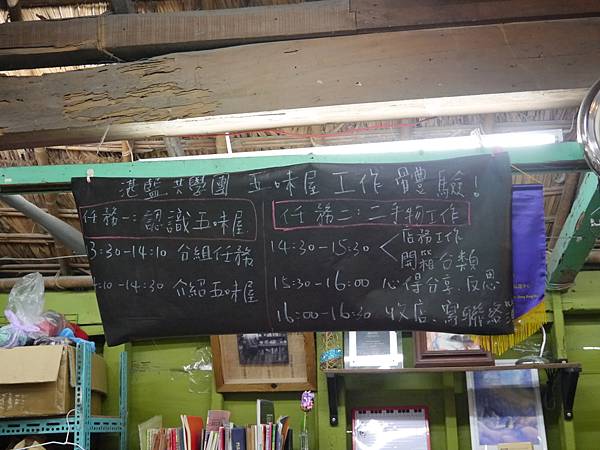 港盟共學團 五味屋 工作體驗!
任務一: 認識五味屋
13:30-14:10 分組任務
14:10-14:30 介紹五味屋
任務二: 二手物工作
14:30-15:30 < 店務工作
開箱分類
15:30-16:00 心得分享、反思
16:00-16:30 收店、寫聯絡